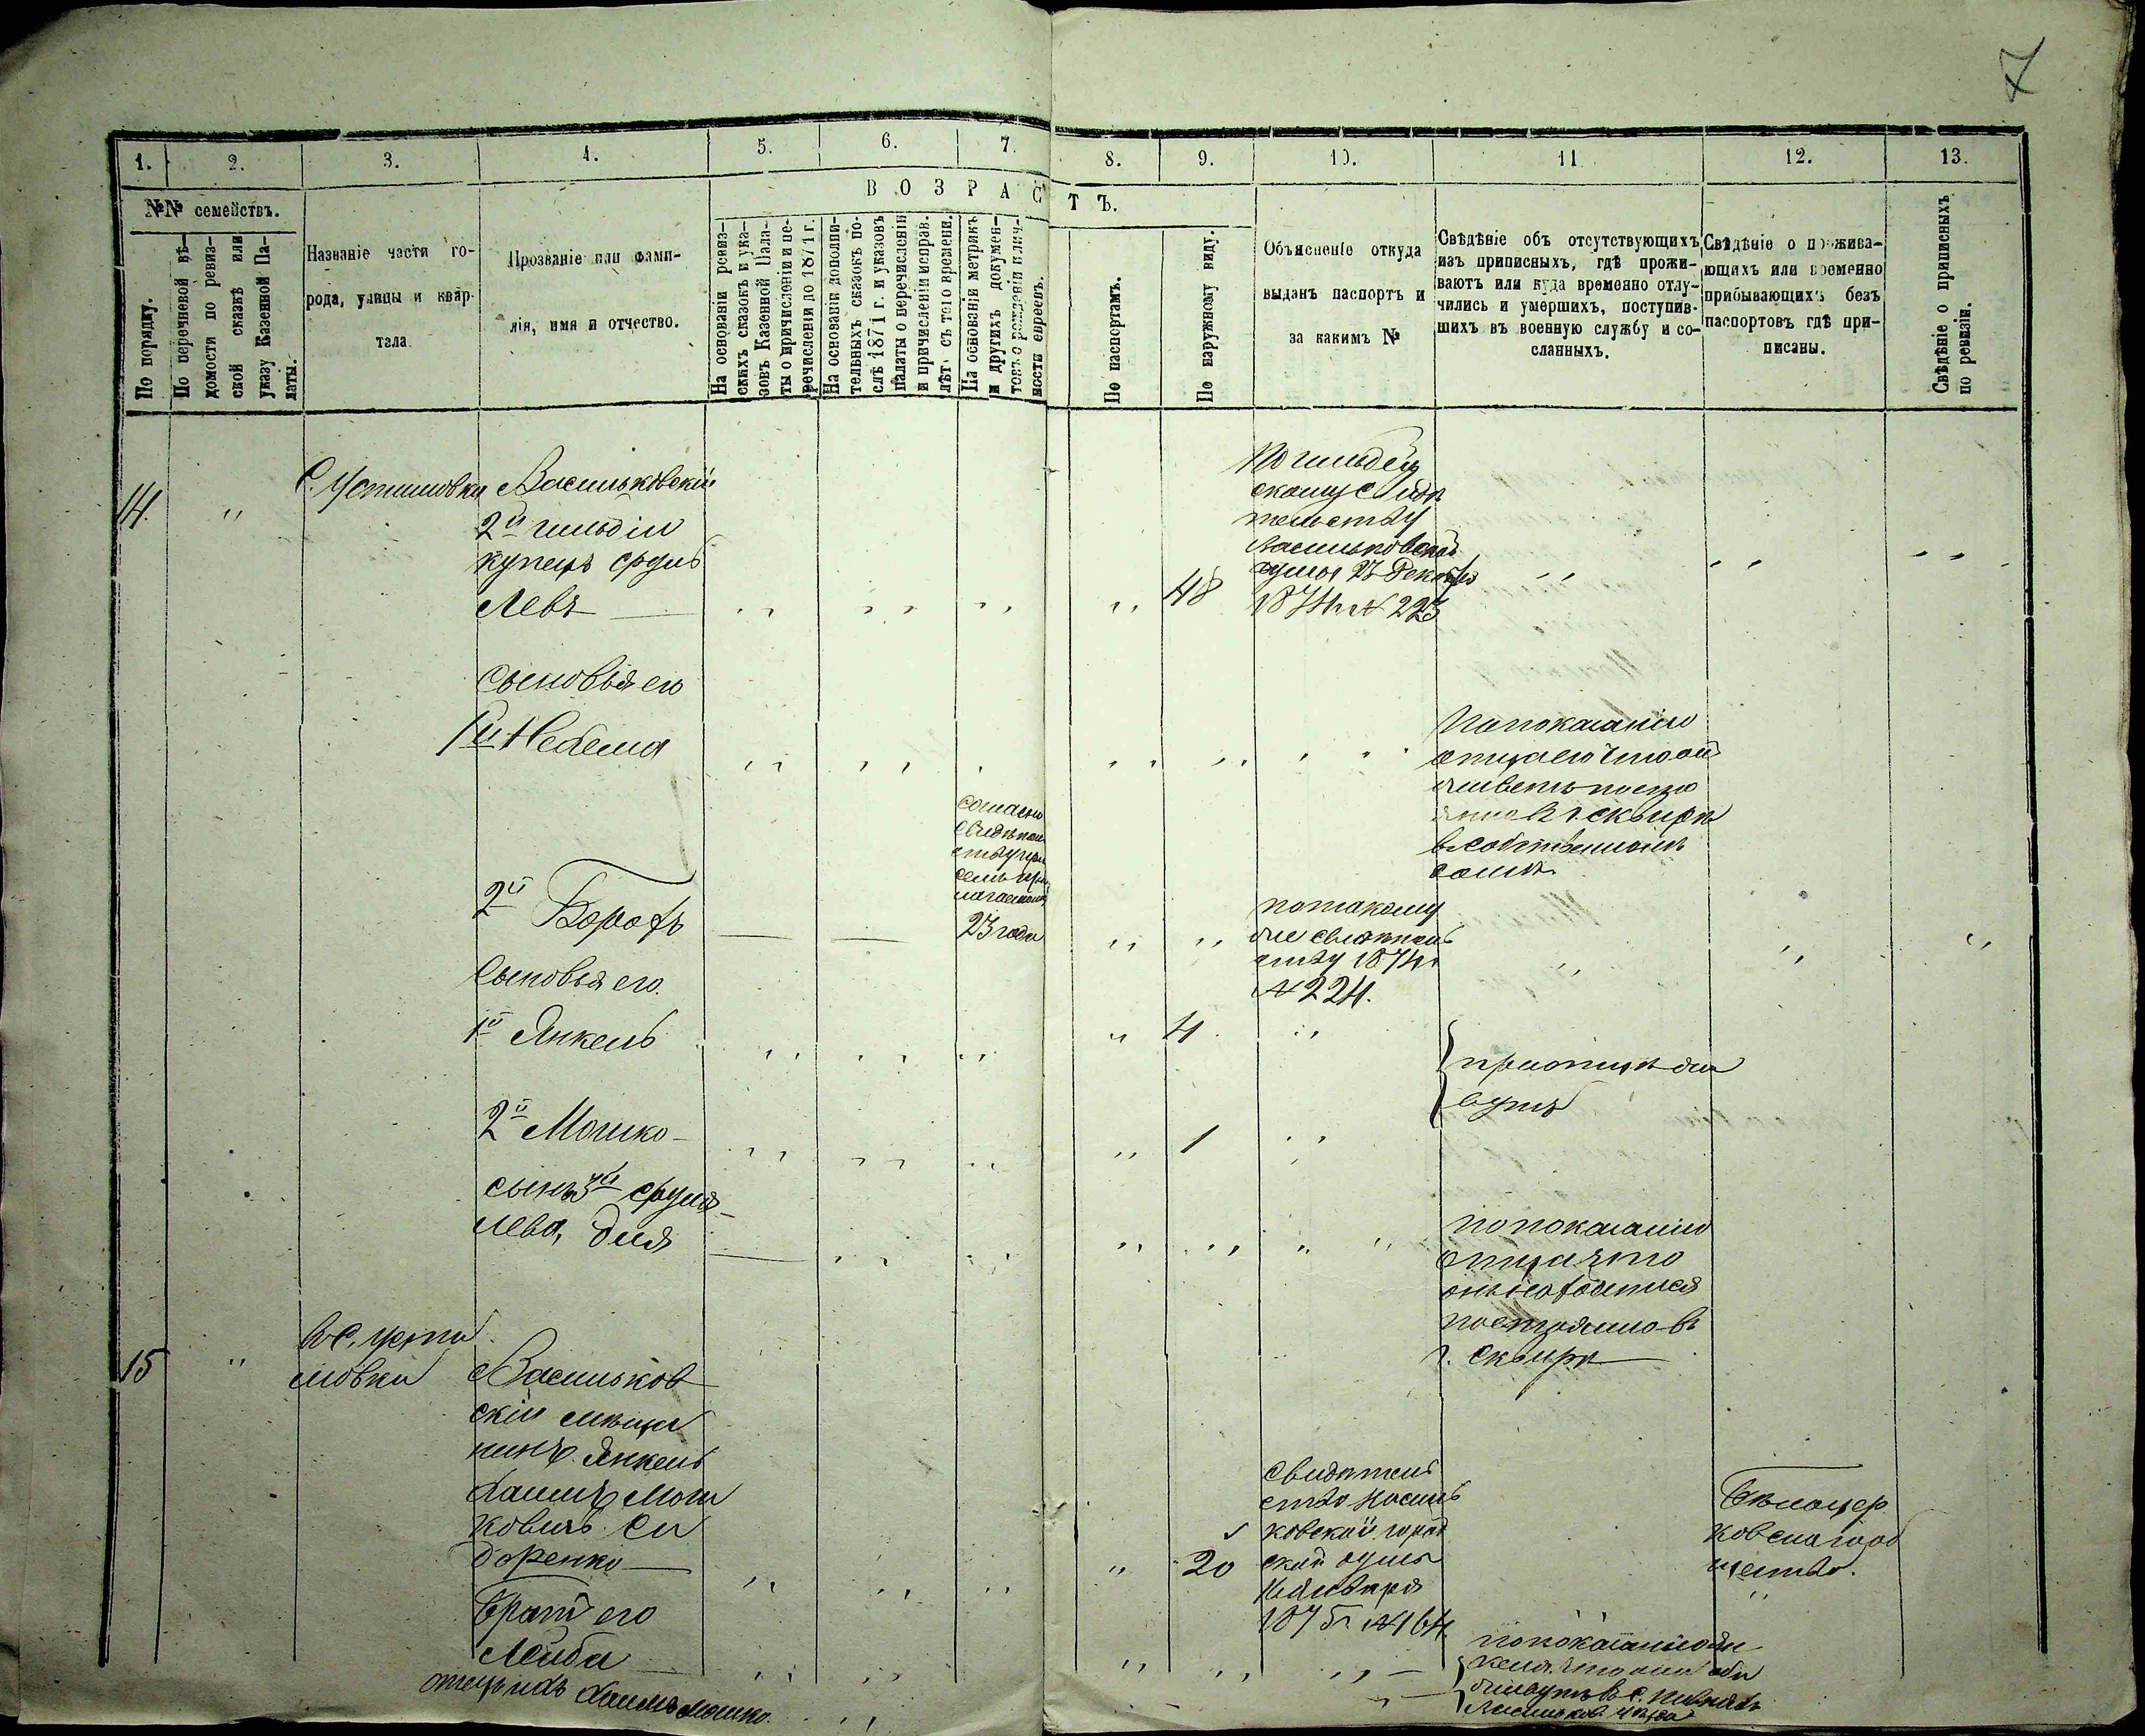 7
1.
2.
3.
4.
5.
6.
7.
8.
9.
10.
11.
12.
13.
№№ семействъ.
ВОЗРАСТЪ.
По порядку.
По перечневой вѣ-
домости по ревиз-
ской сказкѣ или
указу Казенной Па-
латы.
Названіе части го-
рода, улицы и квар-
тала
Прозваніе или фами-
лія, имя и отчество.
На основаніи ревиз-
скихъ сказокъ и ука-
зовъ Казенной Пала-
ты о причисленіи и пе-
речисленіи до 1871 г.
На основаніи дополни-
тельныхъ сказокъ по-
слѣ 1871 г. и указовъ
палаты о перечисленіи
и причисленіи исправ.
лѣт. съ того времени.
На основаніи метрикъ
и другихъ докумен-
товъ о рожденіи и лич-
ности евреевъ.
По паспортамъ.
По наружному виду.
Объясненіе откуда
выданъ паспортъ и
за какимъ №
Свѣдѣніе объ отсутствующихъ
изъ приписныхъ, гдѣ прожи-
ваютъ или куда временно отлу-
чились и умершихъ, поступив-
шихъ въ военную службу и со-
сланныхъ.
Свѣдѣніе о прожива-
ющихъ или временно
прибывающихъ безъ
паспортовъ гдѣ при-
писаны.
Свѣдѣніе о приписныхъ
по ревизіи.
14. "
С. Устимовки
Васильковскій
2й гильдіи
купецъ Сруль
Левъ
48
По гильдей
скому свидѣ
тельству
Васильковской
думы 23 Декабря
1874 г № 223
Сыновья его
1й
По показанію
отца его что онъ
живетъ посто
янно в г. Сквирѣ
в собственномъ
домѣ
2й Борох
Согласно
свидѣтель
ству при
семъ при
лагаемому
23 года
по такому
же свидѣтель
ству 1874 г
№ 224.
Сыновья его.
1й Янкель
4
2й Мошко
1
при отцѣ жи
вутъ
сынъ 3й Сруля
Лева,
По показанію
отца что
онъ находится
постоянно въ
г. Сквирѣ
15 "
В С. Усти
мовки
Васильков
скій мѣща
нинъ Янкель
Хаимъ Мош
ковичъ Си
доренко
20
Свидѣтель
ство Василь
ковской город
ской думы
Января
1875 г № 164.
Бѣлоцер
ковское общ
ество.
Братъ его
Лейба
отецъ ихъ Хаимъ Мошко
по показанію Ян
келя что они оба
живутъ в с.
Васильков. уѣзда